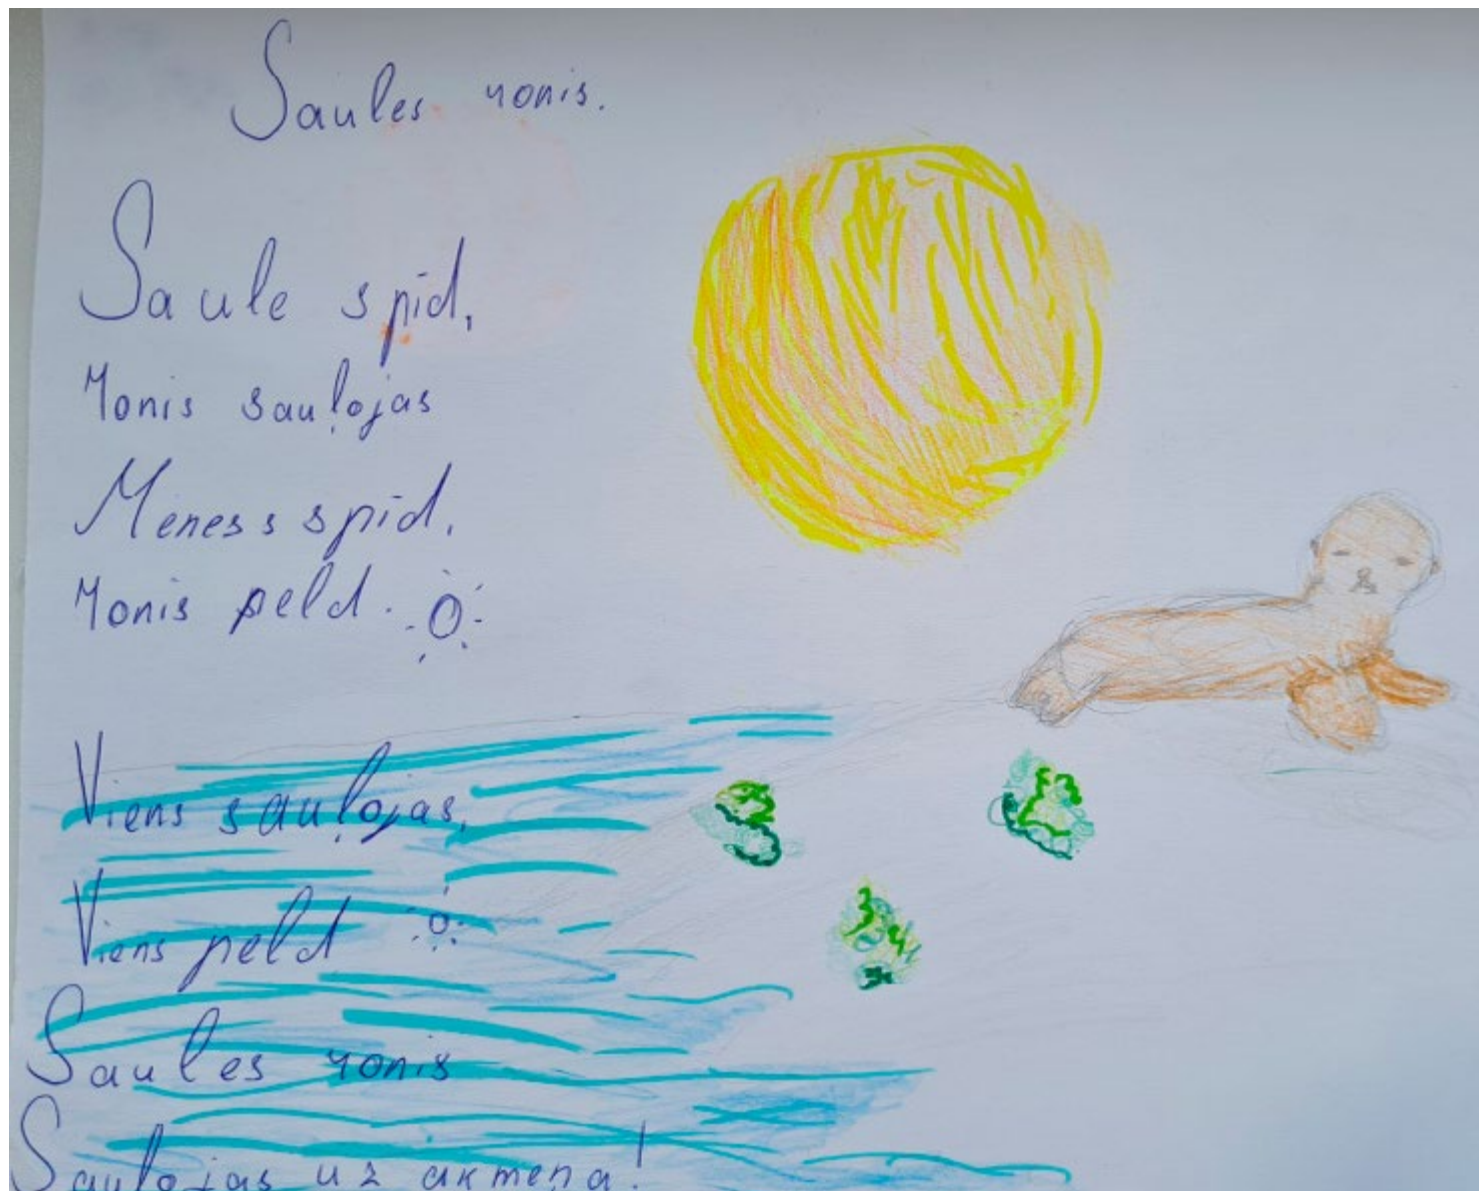 Saules ronis.
Saule spīd,
Ronis sauļojas
Mēness spīd.
Ronis peld.
Viens sauļojas,
Viens peld
Saules ronis
Sauļojas uz akmeņa!